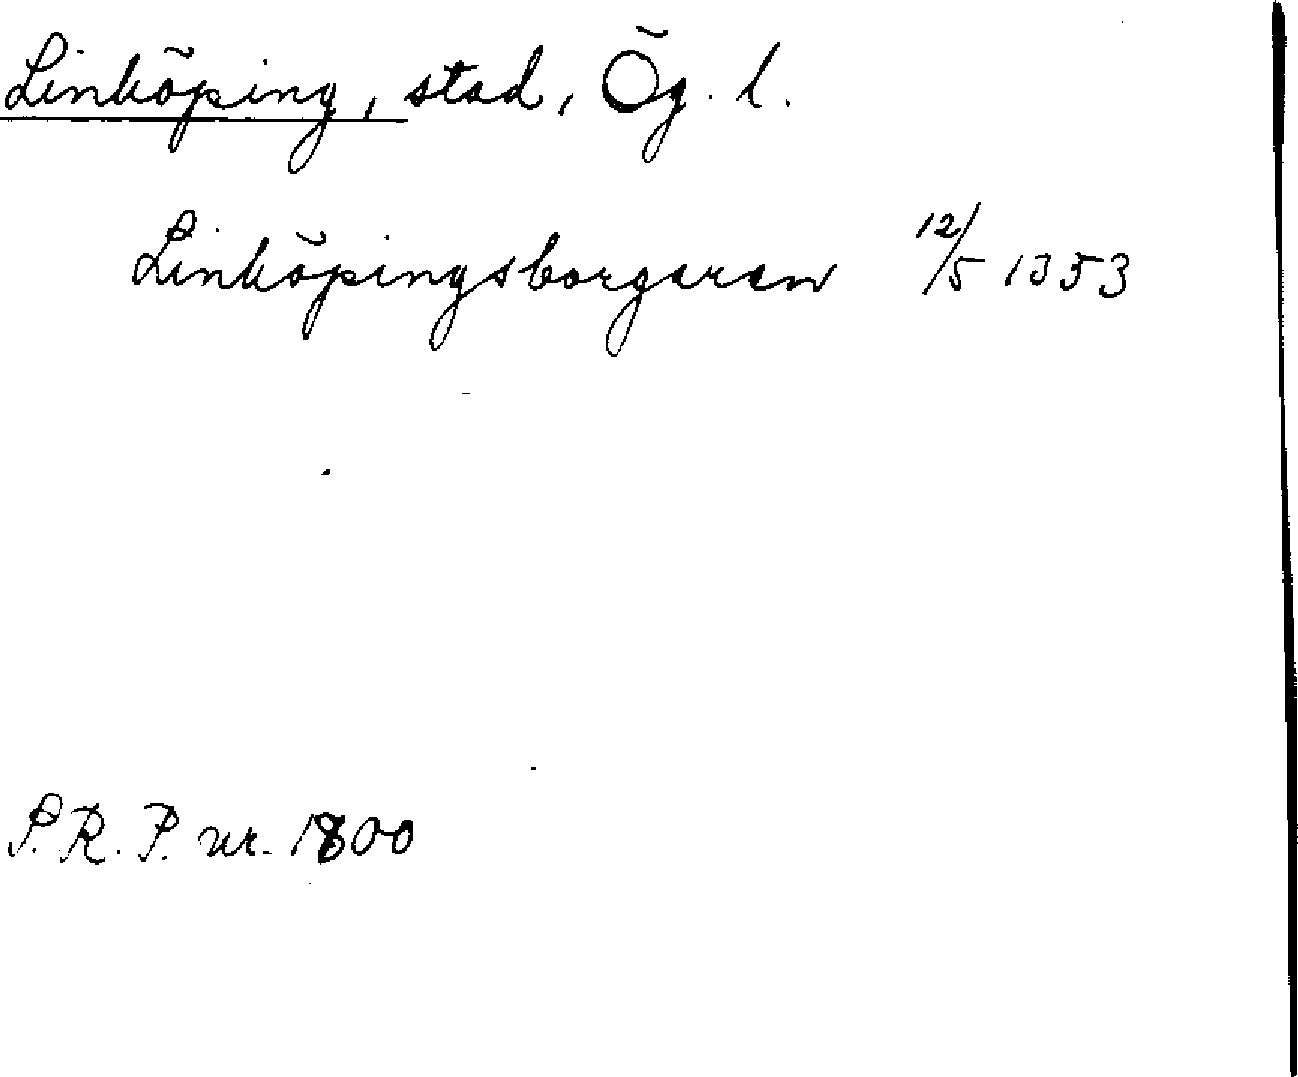 Linköping, stad, Ög. l.
Linköpingsborgaren 12/5 1353
P.R.P. nr. 1800